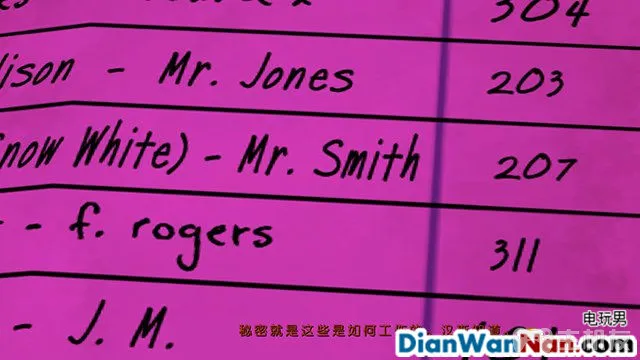 304
lison - Mr. Jones 203
Snow White) - Mr. Smith 207
- f. rogers 311
- J. M.
秘密就是这些是如何工作的
电玩男
DianWanNan.com